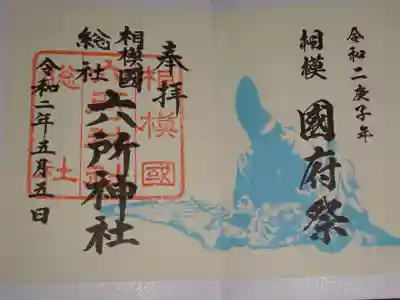 令和二庚子年
相模 國府祭
奉拝
相模國
総社
六所神社
令和二年五月五日
相模國
総社